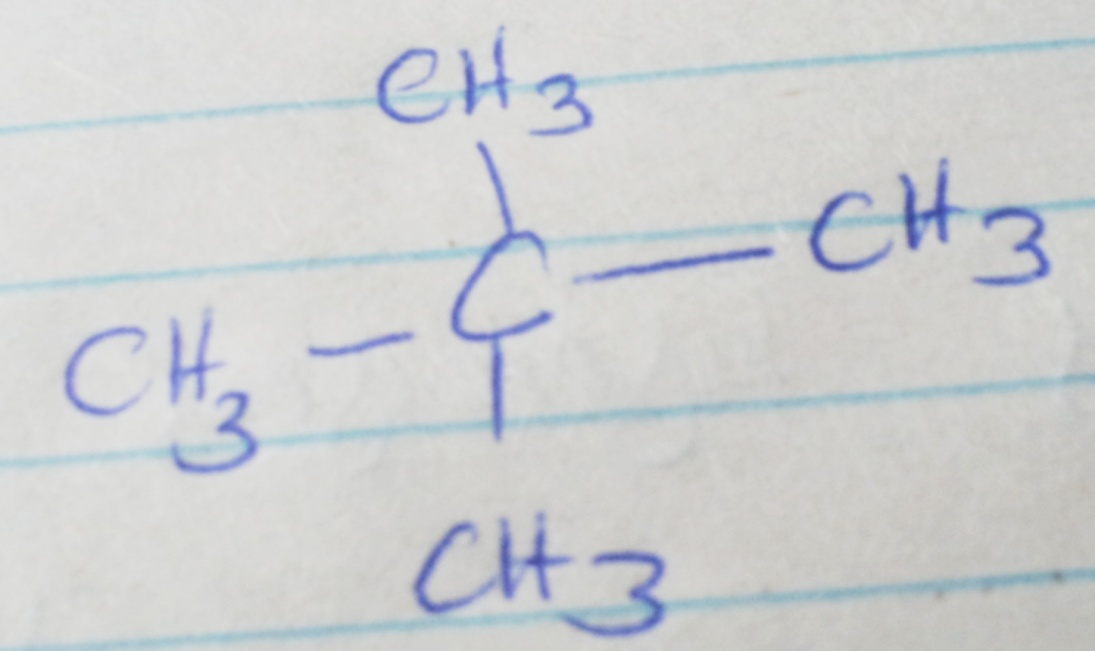 CH3
CH3 - C - CH3
CH3